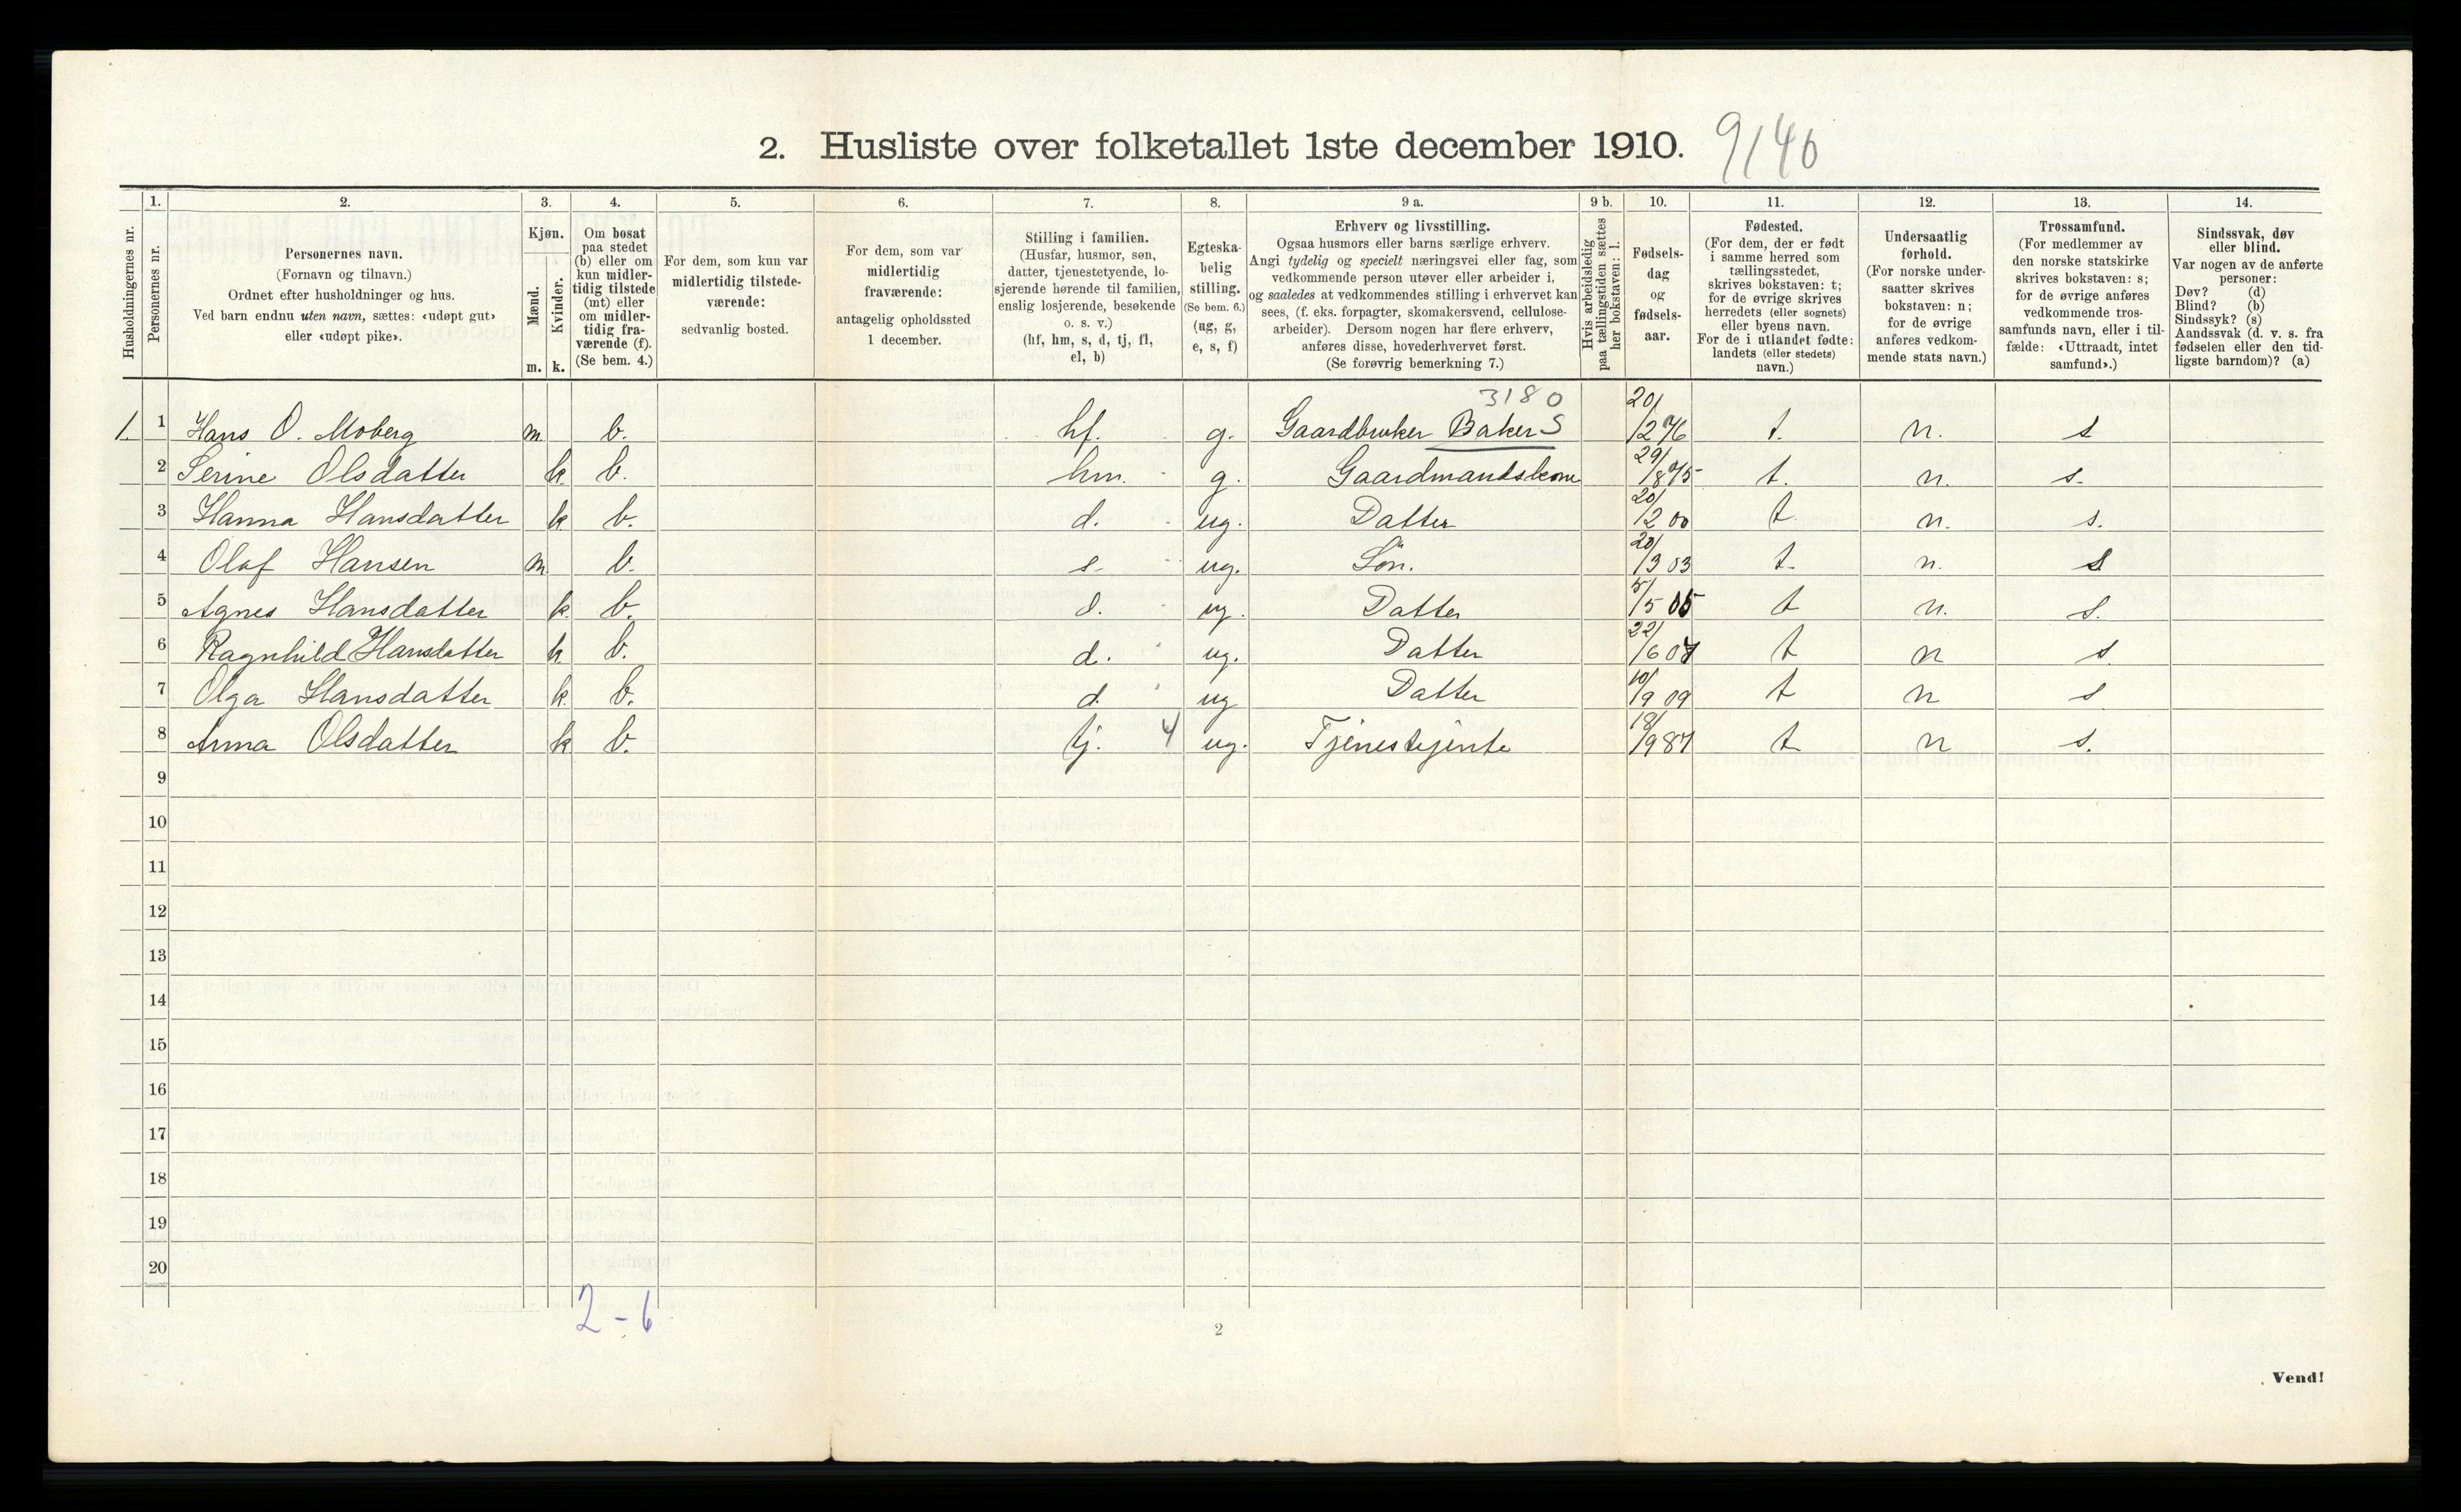 2. Husliste over folketallet 1ste december 1910. 9/40
Husholdningernes nr.
1. Personernes nr.
2. Personernes navn.
(Fornavn og tilnavn.)
Ordnet efter husholdninger og hus.
Ved barn endnu uten navn, sættes: «udøpt gut»
eller «udøpt pike».
3. Kjøn.
Mænd. m.
Kvinder. k.
4. Om bosat
paa stedet
(b) eller om
kun midler-
tidig tilstede
(mt) eller
om midler-
tidig fra-
værende (f).
(Se bem. 4.)
5. For dem, som kun var
midlertidig tilstede-
værende:
sedvanlig bosted.
6. For dem, som var
midlertidig
fraværende:
antagelig opholdssted
1 december.
7. Stilling i familien.
(Husfar, husmor, søn,
datter, tjenestetyende, lo-
sjerende hørende til familien,
enslig losjerende, besøkende
o. s. v.)
(hf, hm, s, d, tj, fl,
el, b)
8. Egteska-
belig
stilling.
(Se bem. 6.)
(ug, g,
e, s, f)
9 a. Erhverv og livsstilling.
Ogsaa husmors eller barns særlige erhverv.
Angi tydelig og specielt næringsvei eller fag, som
vedkommende person utøver eller arbeider i,
og saaledes at vedkommendes stilling i erhvervet kan
sees, (f. eks. forpagter, skomakersvend, cellulose-
arbeider). Dersom nogen har flere erhverv,
anføres disse, hovederhvervet først.
(Se forøvrig bemerkning 7.)
9 b. Hvis arbeidsledig
paa tællingstiden sættes
her bokstaven: l.
10. Fødsels-
dag
og
fødsels-
aar.
11. Fødested.
(For dem, der er født
i samme herred som
tællingsstedet,
skrives bokstaven: t;
for de øvrige skrives
herredets (eller sognets)
eller byens navn.
For de i utlandet fødte:
landets (eller stedets)
navn.)
12. Undersaatlig
forhold.
(For norske under-
saatter skrives
bokstaven: n;
for de øvrige
anføres vedkom-
mende stats navn.)
13. Trossamfund.
(For medlemmer av
den norske statskirke
skrives bokstaven: s;
for de øvrige anføres
vedkommende tros-
samfunds navn, eller i til-
fælde: «Uttraadt, intet
samfund».)
14. Sindssvak, døv
eller blind.
Var nogen av de anførte
personer:
Døv? (d)
Blind? (b)
Sindssyk? (s)
Aandssvak (d. v. s. fra
fødselen eller den tid-
ligste barndom)? (a)
3180
1. 1 Hans O. Moberg m b. hf. g. Gaardbruker Baker S 20/12 76 t. n. s
2 Serine Olsdatter k. b. hm. g. Gaardmandskone 29/8 75 t. n. s.
3 Hanna Hansdatter k b. d. ug. Datter 20/2 00 t n. s.
4 Olaf Hansen m b. s. ug. Søn. 20/3 03 t. n. s
5 Agnes Hansdatter k. b. d. ug. Datter 5/5 05 t n. s.
6 Ragnhild Hansdatter k. b. d. ug. Datter 22/6 07 t n s.
7 Olga Hansdatter k. b. d. ug Datter 10/9 09 t n s
8 Anna Olsdatter k b. tj. 4 ug. Tjenestejente 18/9 87 t n s.
9
10
11
12
13
14
15
16
17
18
19
20
2 - 6
2
Vend!